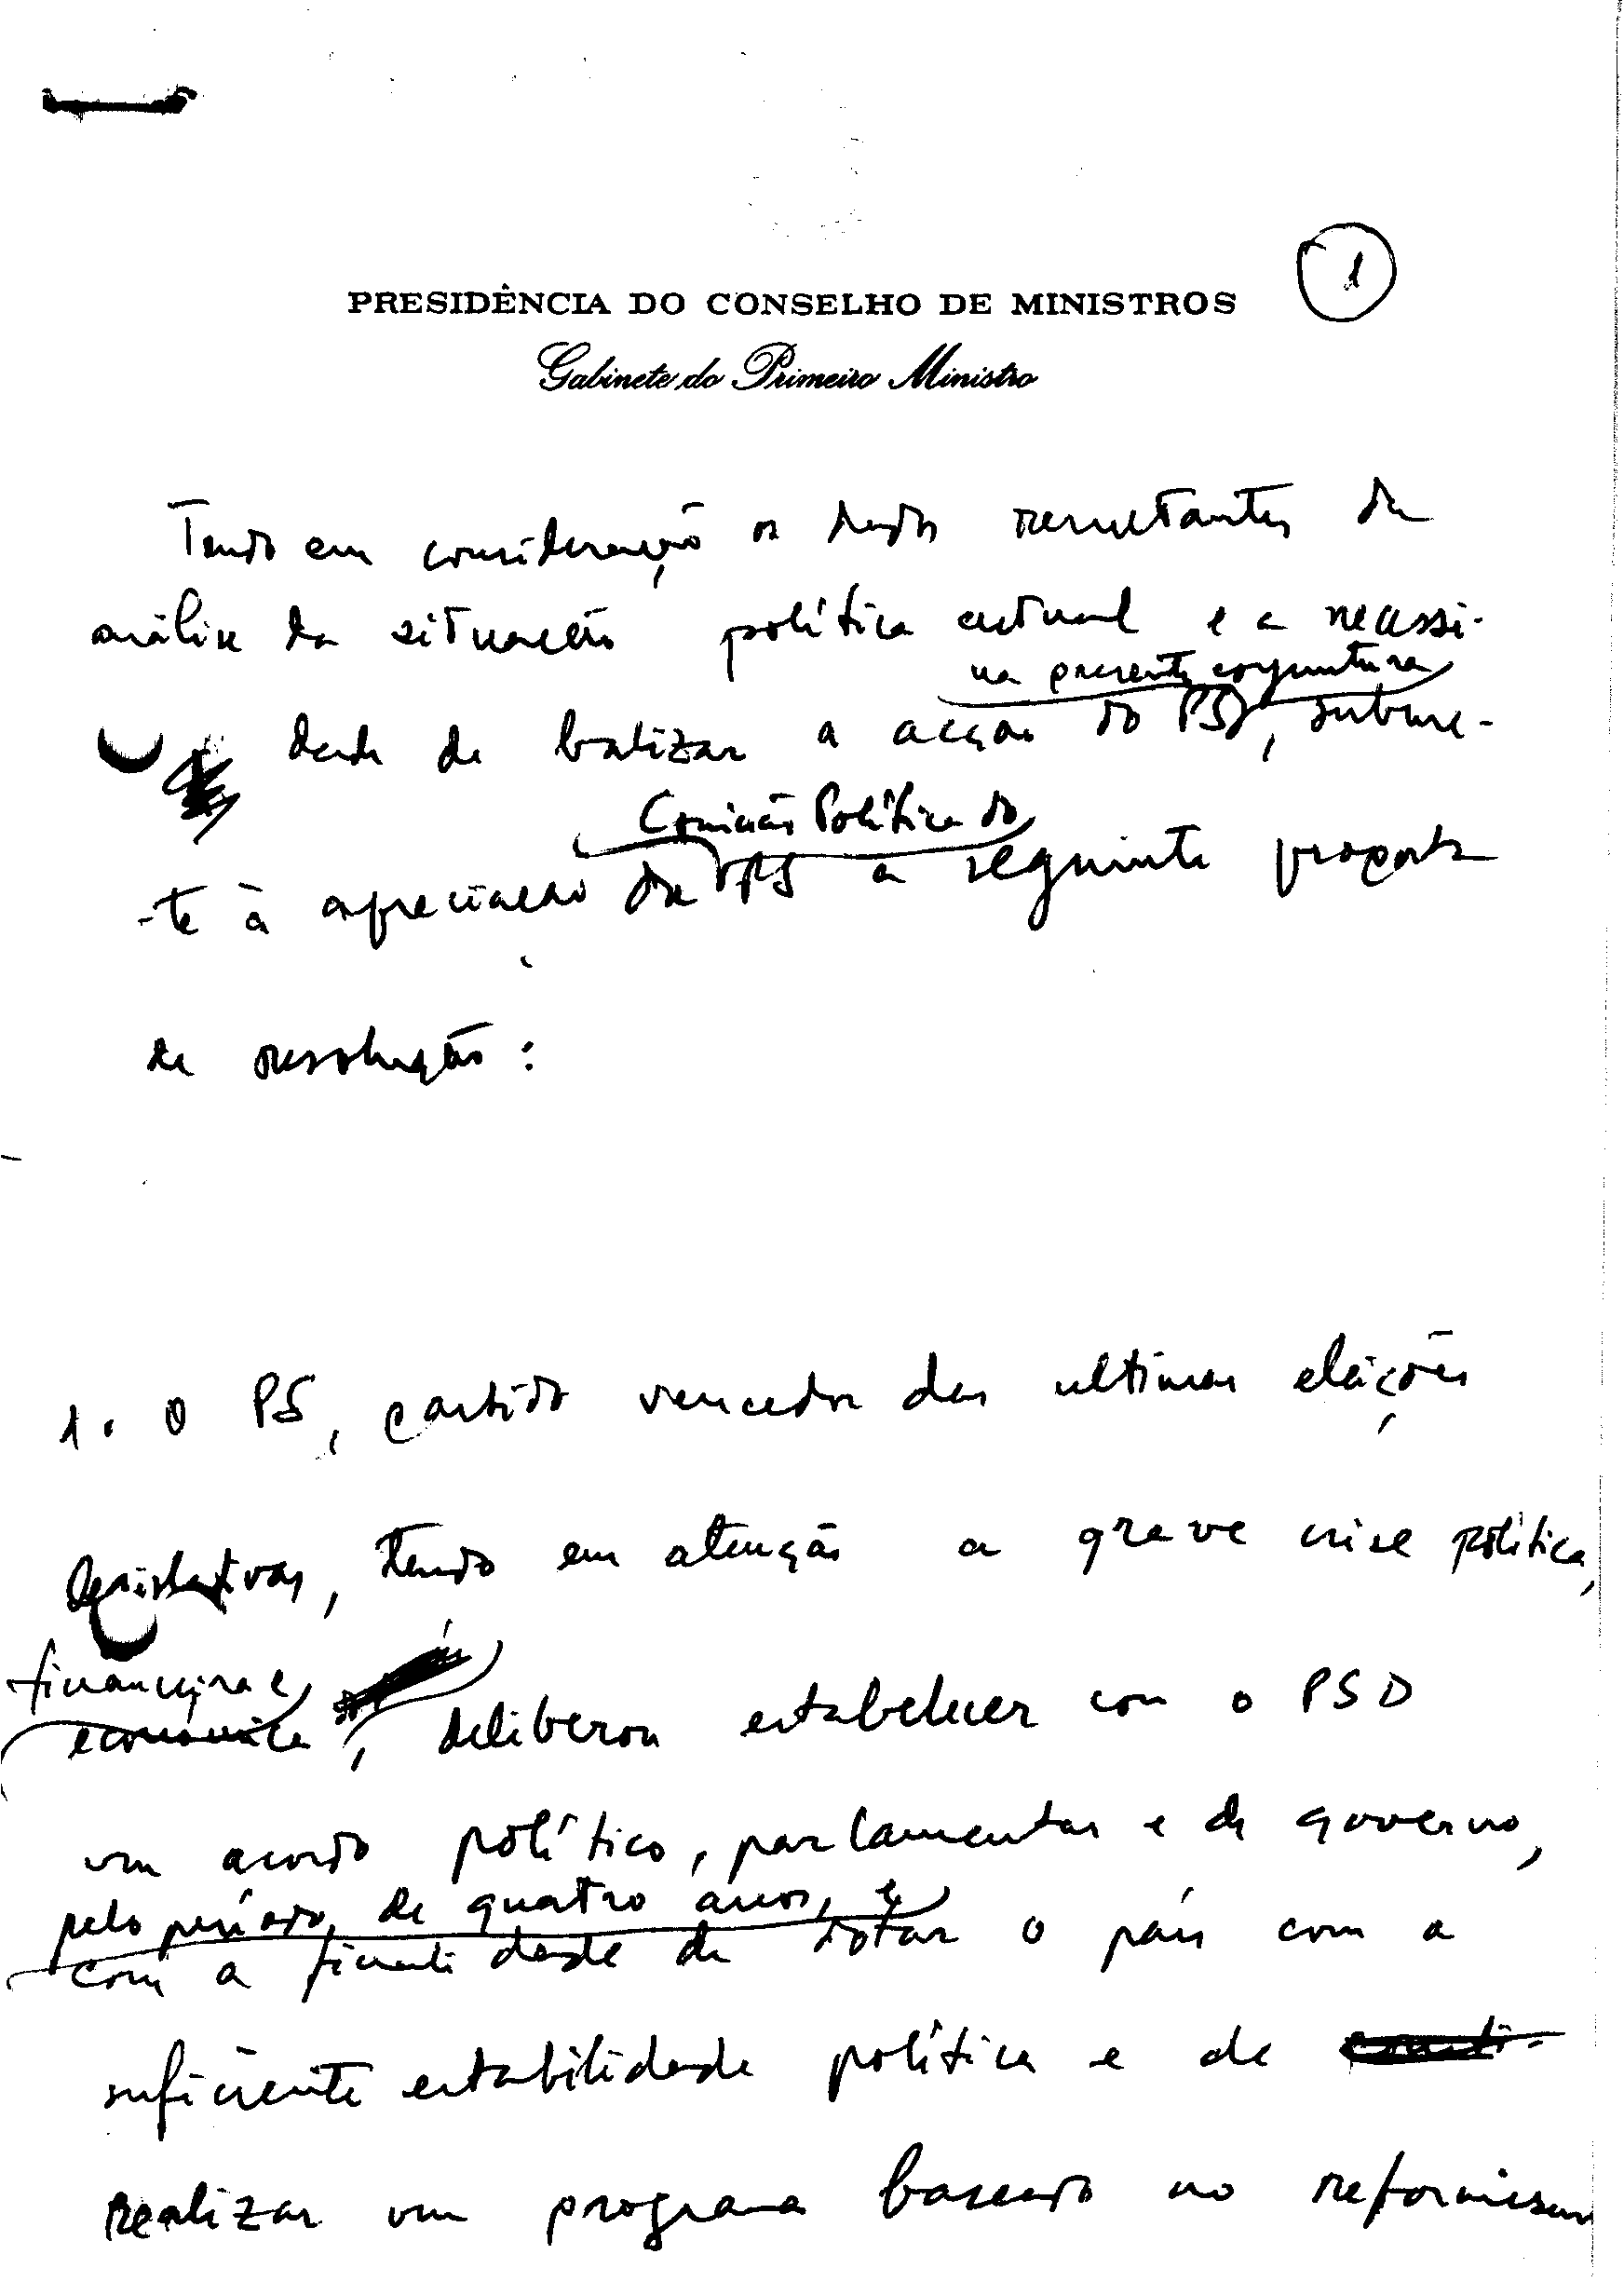 1
PRESIDÊNCIA DO CONSELHO DE MINISTROS
Gabinete do Primeiro Ministro
Tendo em consideração os dados resultantes da
análise da situação política actual e a necessi-
na presente conjuntura
dade de balizar a acção do PSD, subme-
Comissão Política do
-te à apreciação da PS a seguinte proposta
de resolução:
1. O PS, partido vencedor das ultimas eleições
legislativas, tendo em atenção a grave crise política,
financeira e
económica, deliberou estabelecer com o PSD
um acordo político, parlamentar e de governo,
pelo período de quatro anos, e
com a finalidade de dotar o país com a
suficiente estabilidade política e de
realizar um programa baseado no reformismo